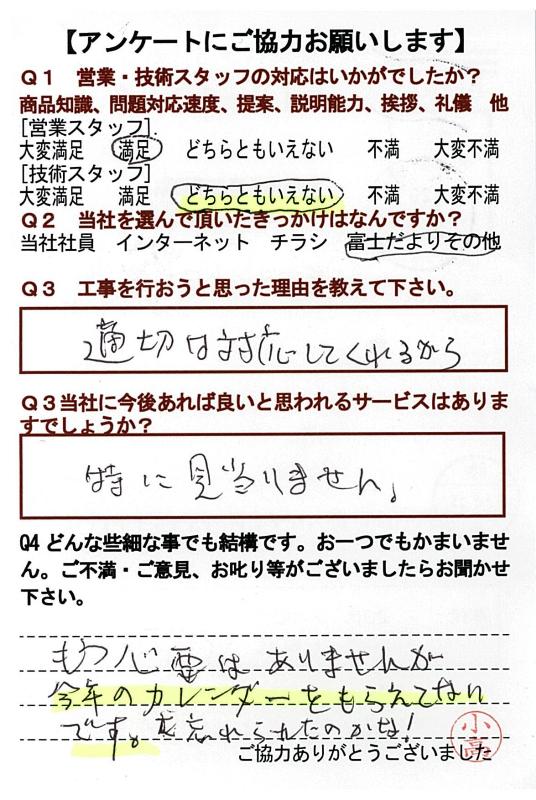 【アンケートにご協力お願いします】
Q1 営業・技術スタッフの対応はいかがでしたか?
商品知識、問題対応速度、提案、説明能力、挨拶、礼儀 他
[営業スタッフ]
大変満足 満足 どちらともいえない 不満 大変不満
[技術スタッフ]
大変満足 満足 どちらともいえない 不満 大変不満
Q2 当社を選んで頂いたきっかけはなんですか?
当社社員 インターネット チラシ 富士だよりその他
Q3 工事を行おうと思った理由を教えて下さい。
適切は対応してくれるから
Q3当社に今後あれば良いと思われるサービスはありま
すでしょうか?
特に見当りません。
Q4 どんな些細な事でも結構です。お一つでもかまいませ
ん。ご不満・ご意見、お叱り等がございましたらお聞かせ
下さい。
はありませんが
今年のカレンダーをもらえてない
です。忘れられたのかな!
ご協力ありがとうございました